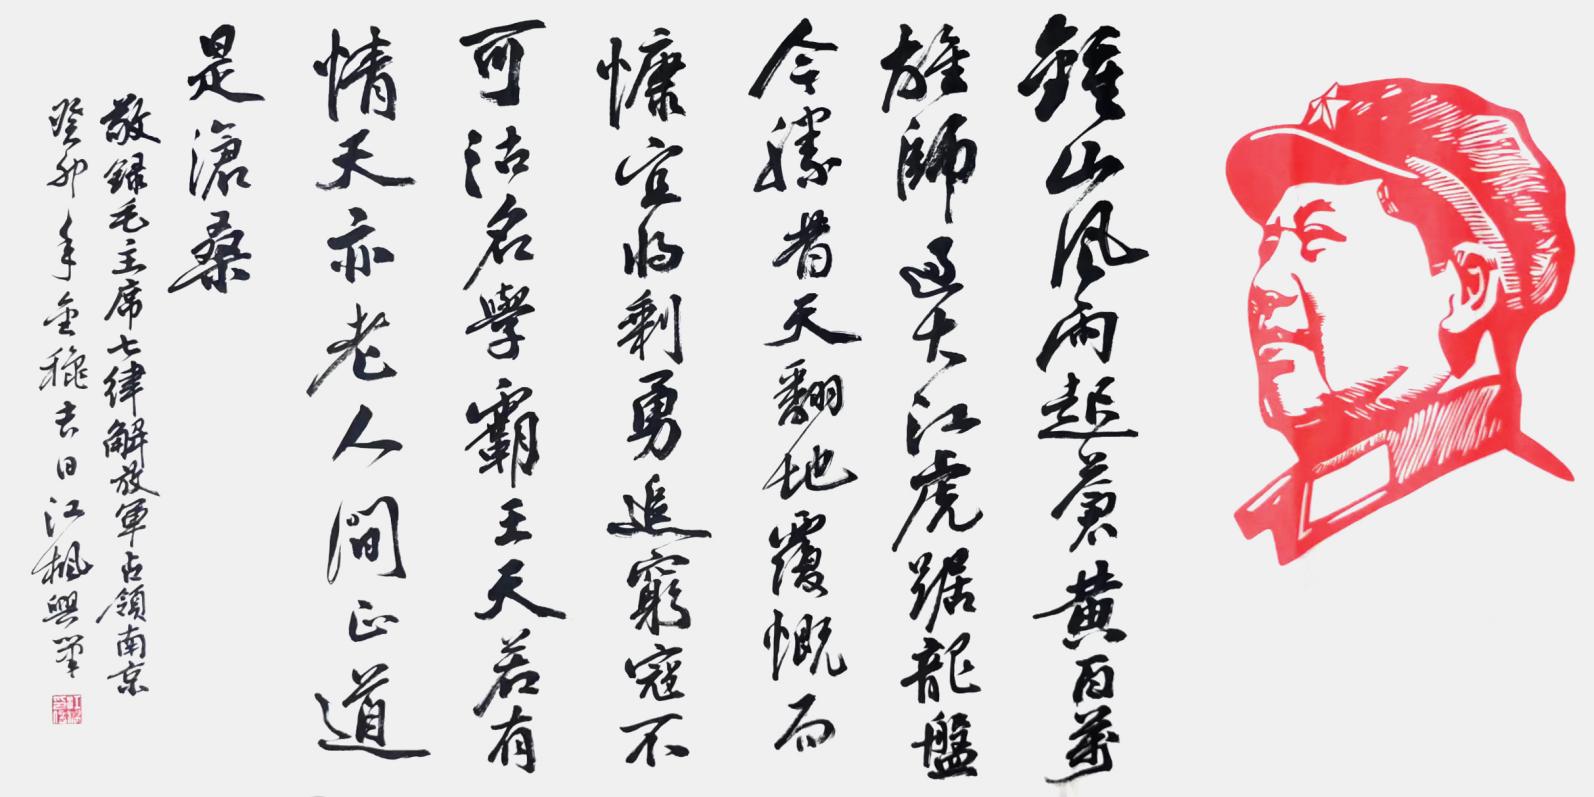 鍾山風雨起蒼黃百萬
雄師過大江虎踞龍盤
今勝昔天翻地覆慨而
慷宜將剩勇追窮寇不
可沽名學霸王天若有
情天亦老人間正道
是滄桑
敬録毛主席七律解放軍占領南京
癸卯年金穐吉日江楓興筆